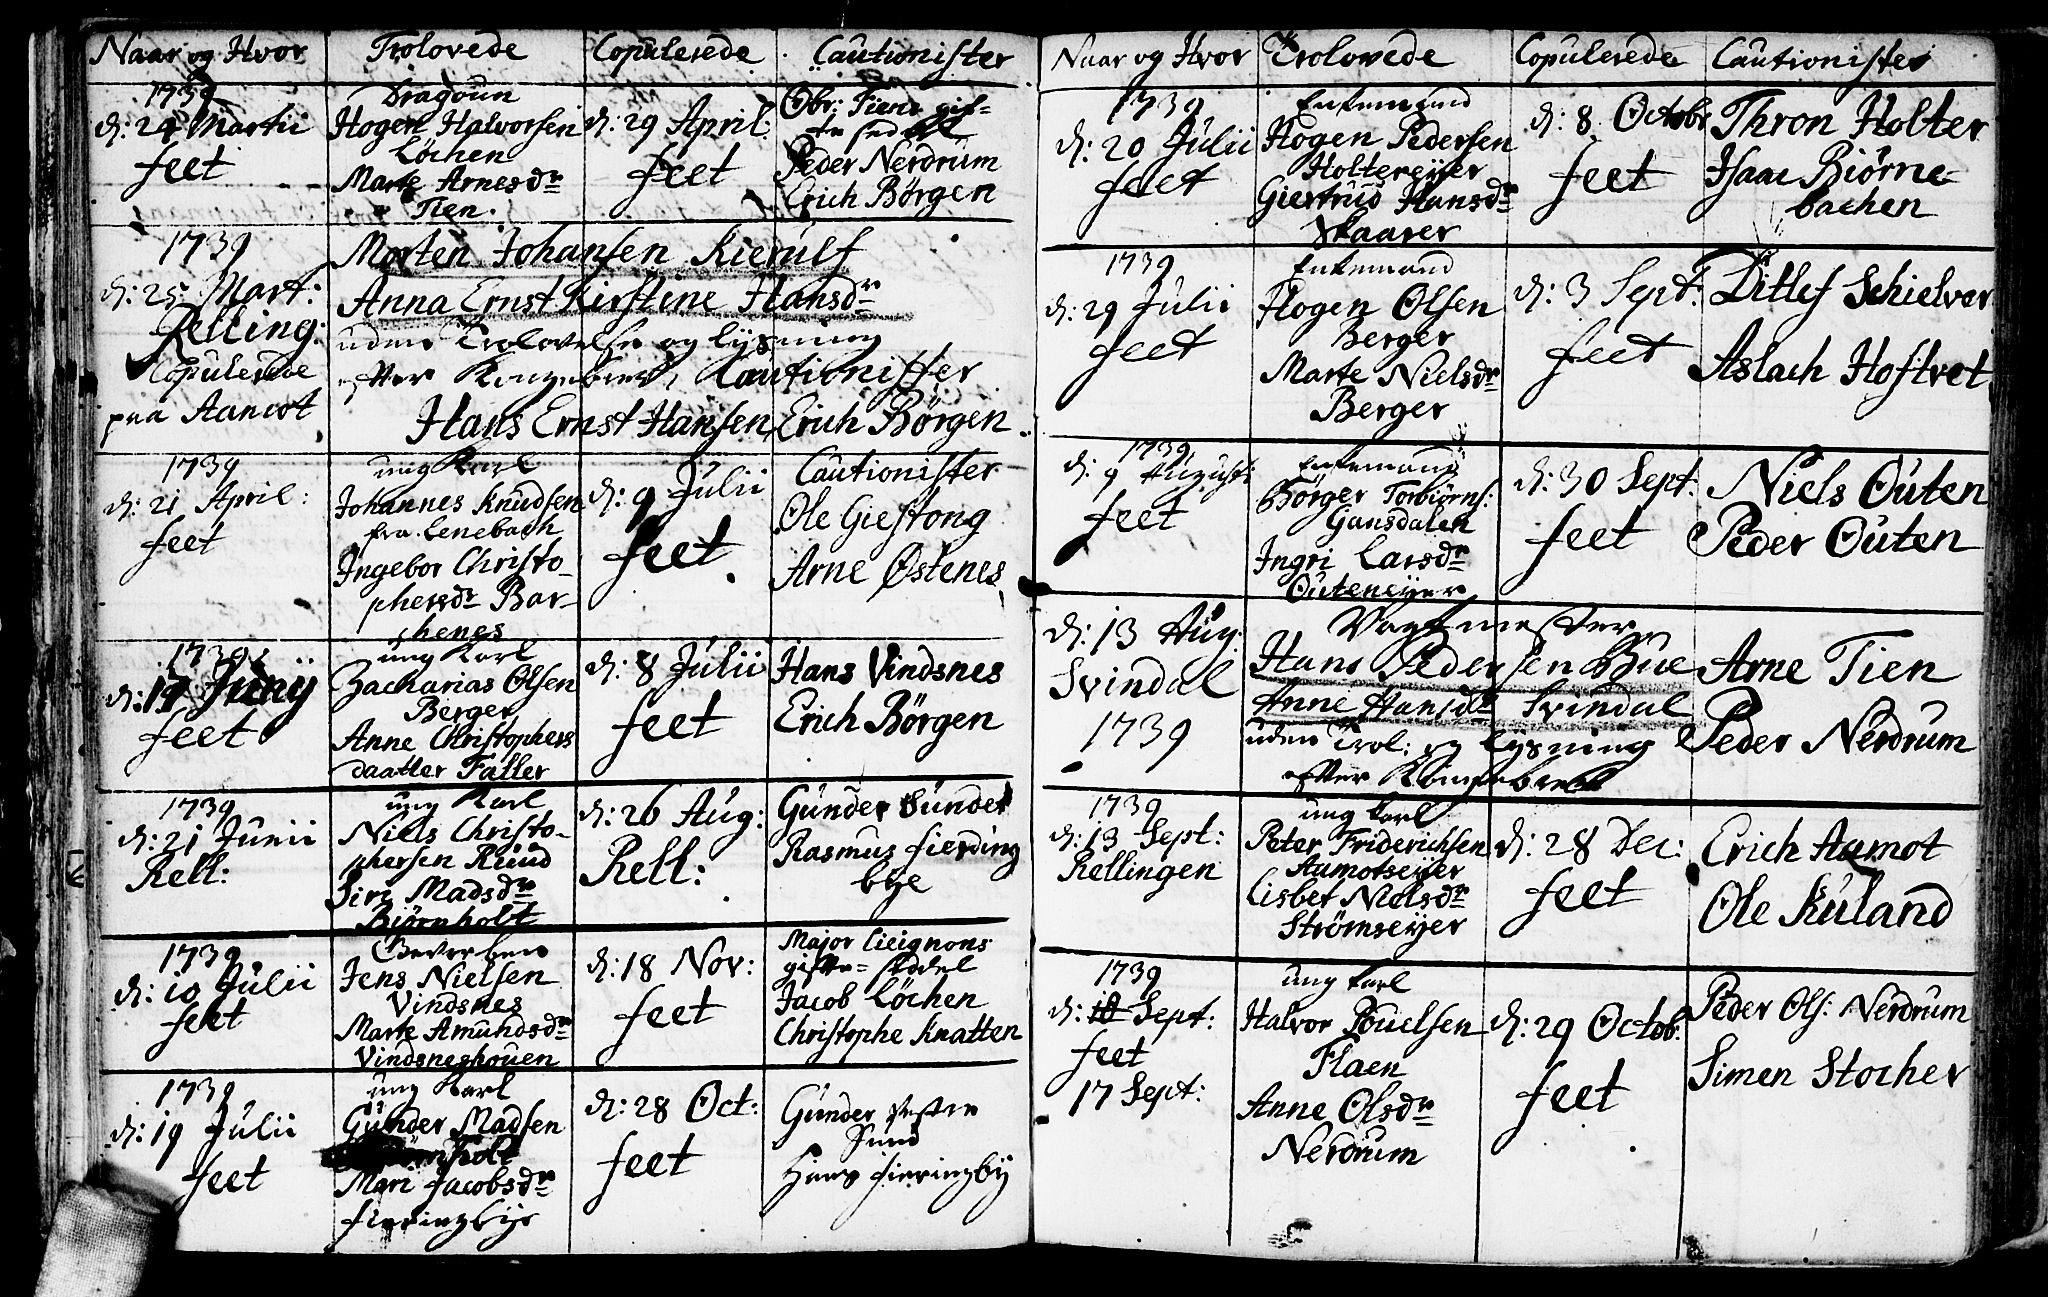 Naar og Hvor Trolovede Copulerede Cautionister
1739
d: 24 Martii
feet
Dragoun
Hogen Halvorsen
Löchen
Marte Arnesdr
Tien.
d: 29 April
feet
Obr: Fiens gif-
te sedel
Peder Nerdrum
Erich Börgen
1739
d: 25 Mart:
Relling:
Copulerede
paa Aamot
Morten Johansen Kierulf
Anna Ernst Kirstine Hansdr
uden Trolovelse og lysning
efter Kongebref, Cautionister
Hans Ernst Hansen, Erich Börgen
1739
d: 21 April:
feet
ung Karl
Johannes Knudsen
fra Enebach
Ingebor Christo-
phersdr Bar-
chenes
d: 9 Julii
feet
Cautionister
Ole Giestong
Arne Østenes
1739
d: 19 Junij
feet
ung Karl
Zacharias Olsen
Berger
Anne Christophers
daatter Faller
d: 8 Julii
feet
Hans Vindsnes
Erich Börgen
1739
d: 21 Junii
Rell:
ung Karl
Niels Christo-
phersen Ruud
Siri Madsdr
Biörnholt
d: 26 Aug:
Rell:
Gunder Sunder
Rasmus fierding
bye
1739
d: 10 Julii
feet
Geverben
Jens Nielsen
Vindsnes
Marte Amundsdr
Vindsneshouen
d: 18 Nov:
feet
Major Cicignons
gifte-sedel
Jacob Löchen
Christophe Knatten
1739
d: 19 Julii
feet
ung Karl
Gunder Madsen
Mari Jacobsdr
fierringbye
d: 28 Oct:
feet
Gunder Vestre
Sund
Hans fierringby
Naar og Hvor Trolovede Copulerede Cautionister
1739
d: 20 Julii
feet
Enkemand
Hogen Pedersen
Holtereyer
Giertrud Hansdr
Skaarer
d: 8 Octobr
feet
Thron Holter
Isaac Biörne-
bachen
1739
d: 29 Julii
feet
Enkemand
Hogen Olsen
Berger
Marte Nielsdr
Berger
d: 3 Sept:
feet
Ditlef Schielver
Aslach Hoftvet
1739
d: 9 Augusti
feet
Enkemand
Börger Torbiörns:
Gansdalen
Ingri Larsdr
Outeneyer
d: 30 Sept:
feet
Niels Outen
Peder Outen
d: 13 Aug:
Svindal
1739
Vagtmester
Hans Pedersen Bue
Anne Hansdr Svindal
uden Trol: og lysning
efter Kongebref
Arne Tien
Peder Nerdrum
1739
d: 13 Sept:
Rellingen
ung karl
Peter Friderichsen
Aamotseyer
Lisbet Nielsdr
Strömseyer
d: 28 Dec:
feet
Erich Aamot
Ole Ruland
1739
d: 10 Sept:
feet
17 Sept:
ung karl
Halvor Pouelsen
Flaen
Anne Olsdr
Nerdrum
d: 29 Octob:
feet
Peder Ols: Nerdrum
Simen Stocher